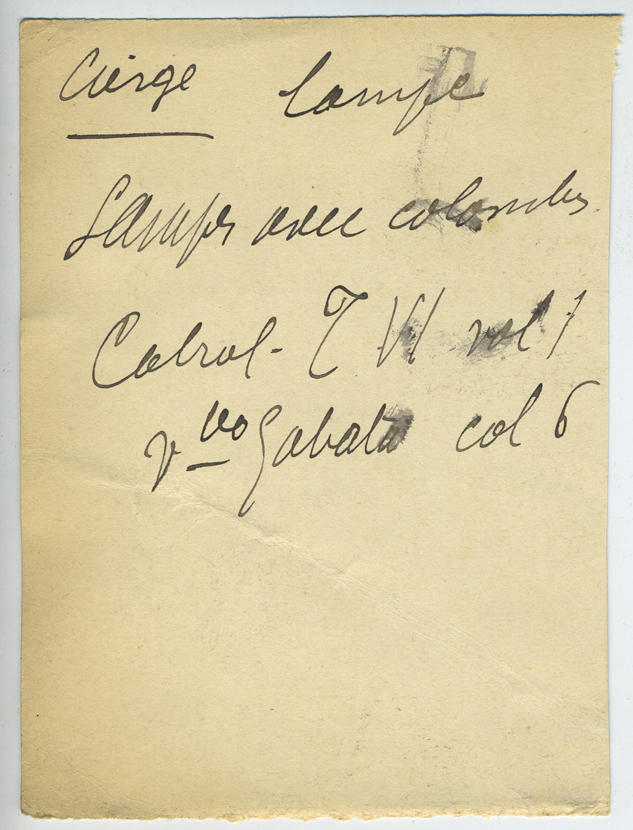 Cierge lampe
Lampes avec colombes.
Cabrol - T VI vol 1
v vo Gabata col 6